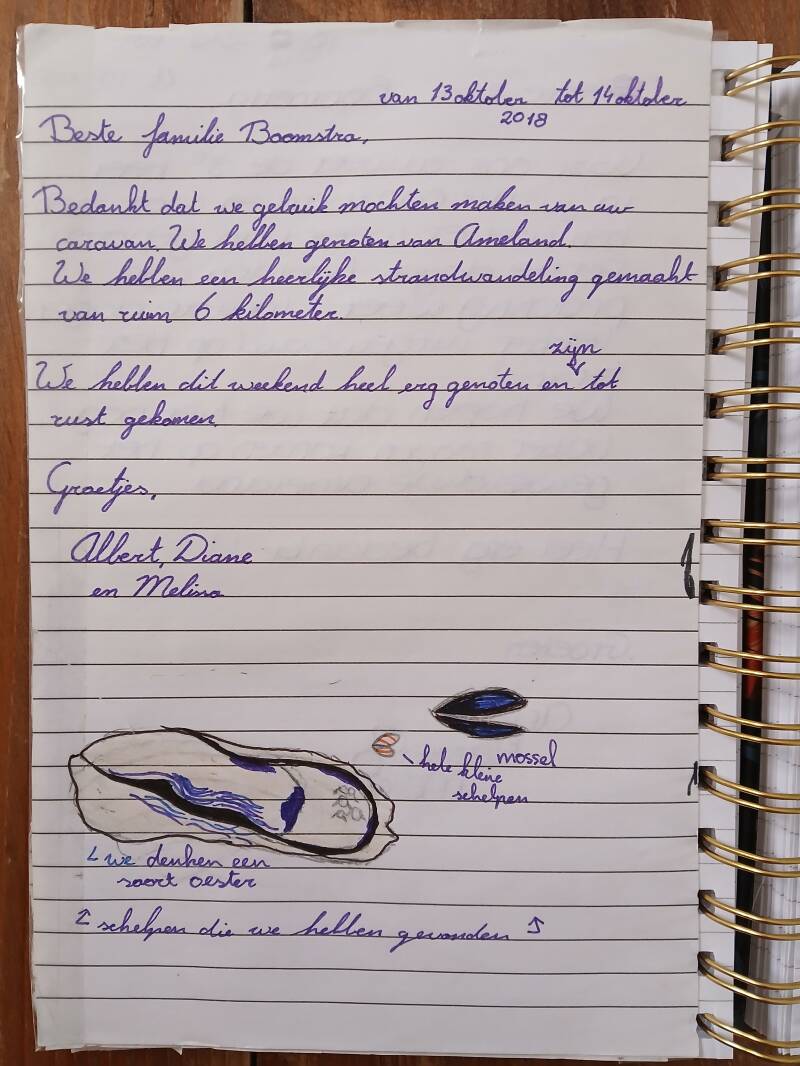 van 13 oktober tot 14 oktober
2018
Beste familie Boomstra,
Bedankt dat we gebruik mochten maken van uw
caravan. We hebben genoten van Ameland.
We hebben een heerlijke strandwandeling gemaakt
van ruim 6 kilometer.
zijn
We hebben dit weekend heel erg genoten en tot
rust gekomen.
Groetjes,
Albert, Diane
en Melina
mossel
hele kleine
schelpen
↳ we denken een
soort oester
↑ schelpen die we hebben gevonden ↑